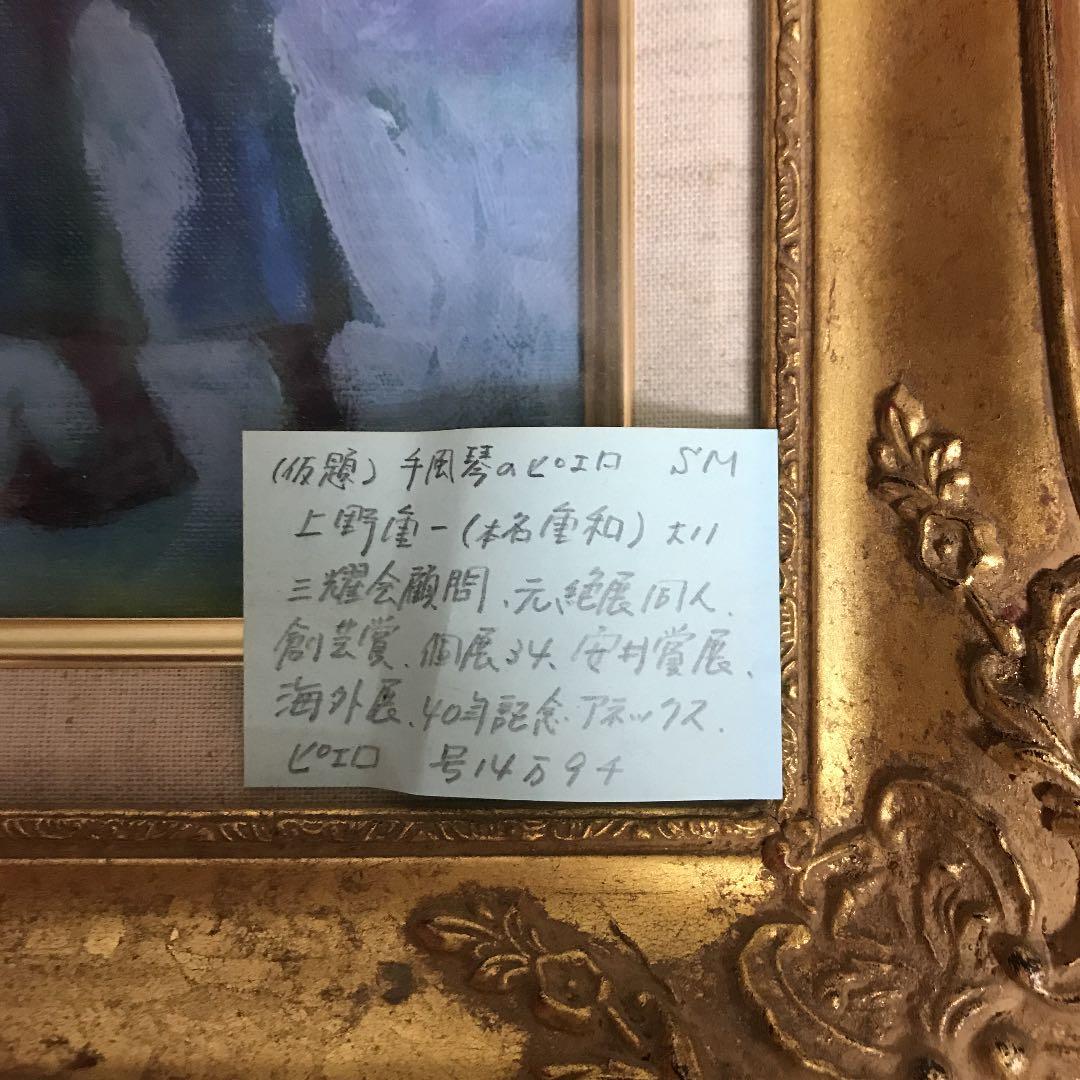 (仮題) 手風琴のピエロ SM
上野重一(本名重和) 大11
三耀会顧問、元、絶展同人、
創芸賞、個展34、安井賞展、
海外展、40年記念アネックス、
ピエロ 号14万9千